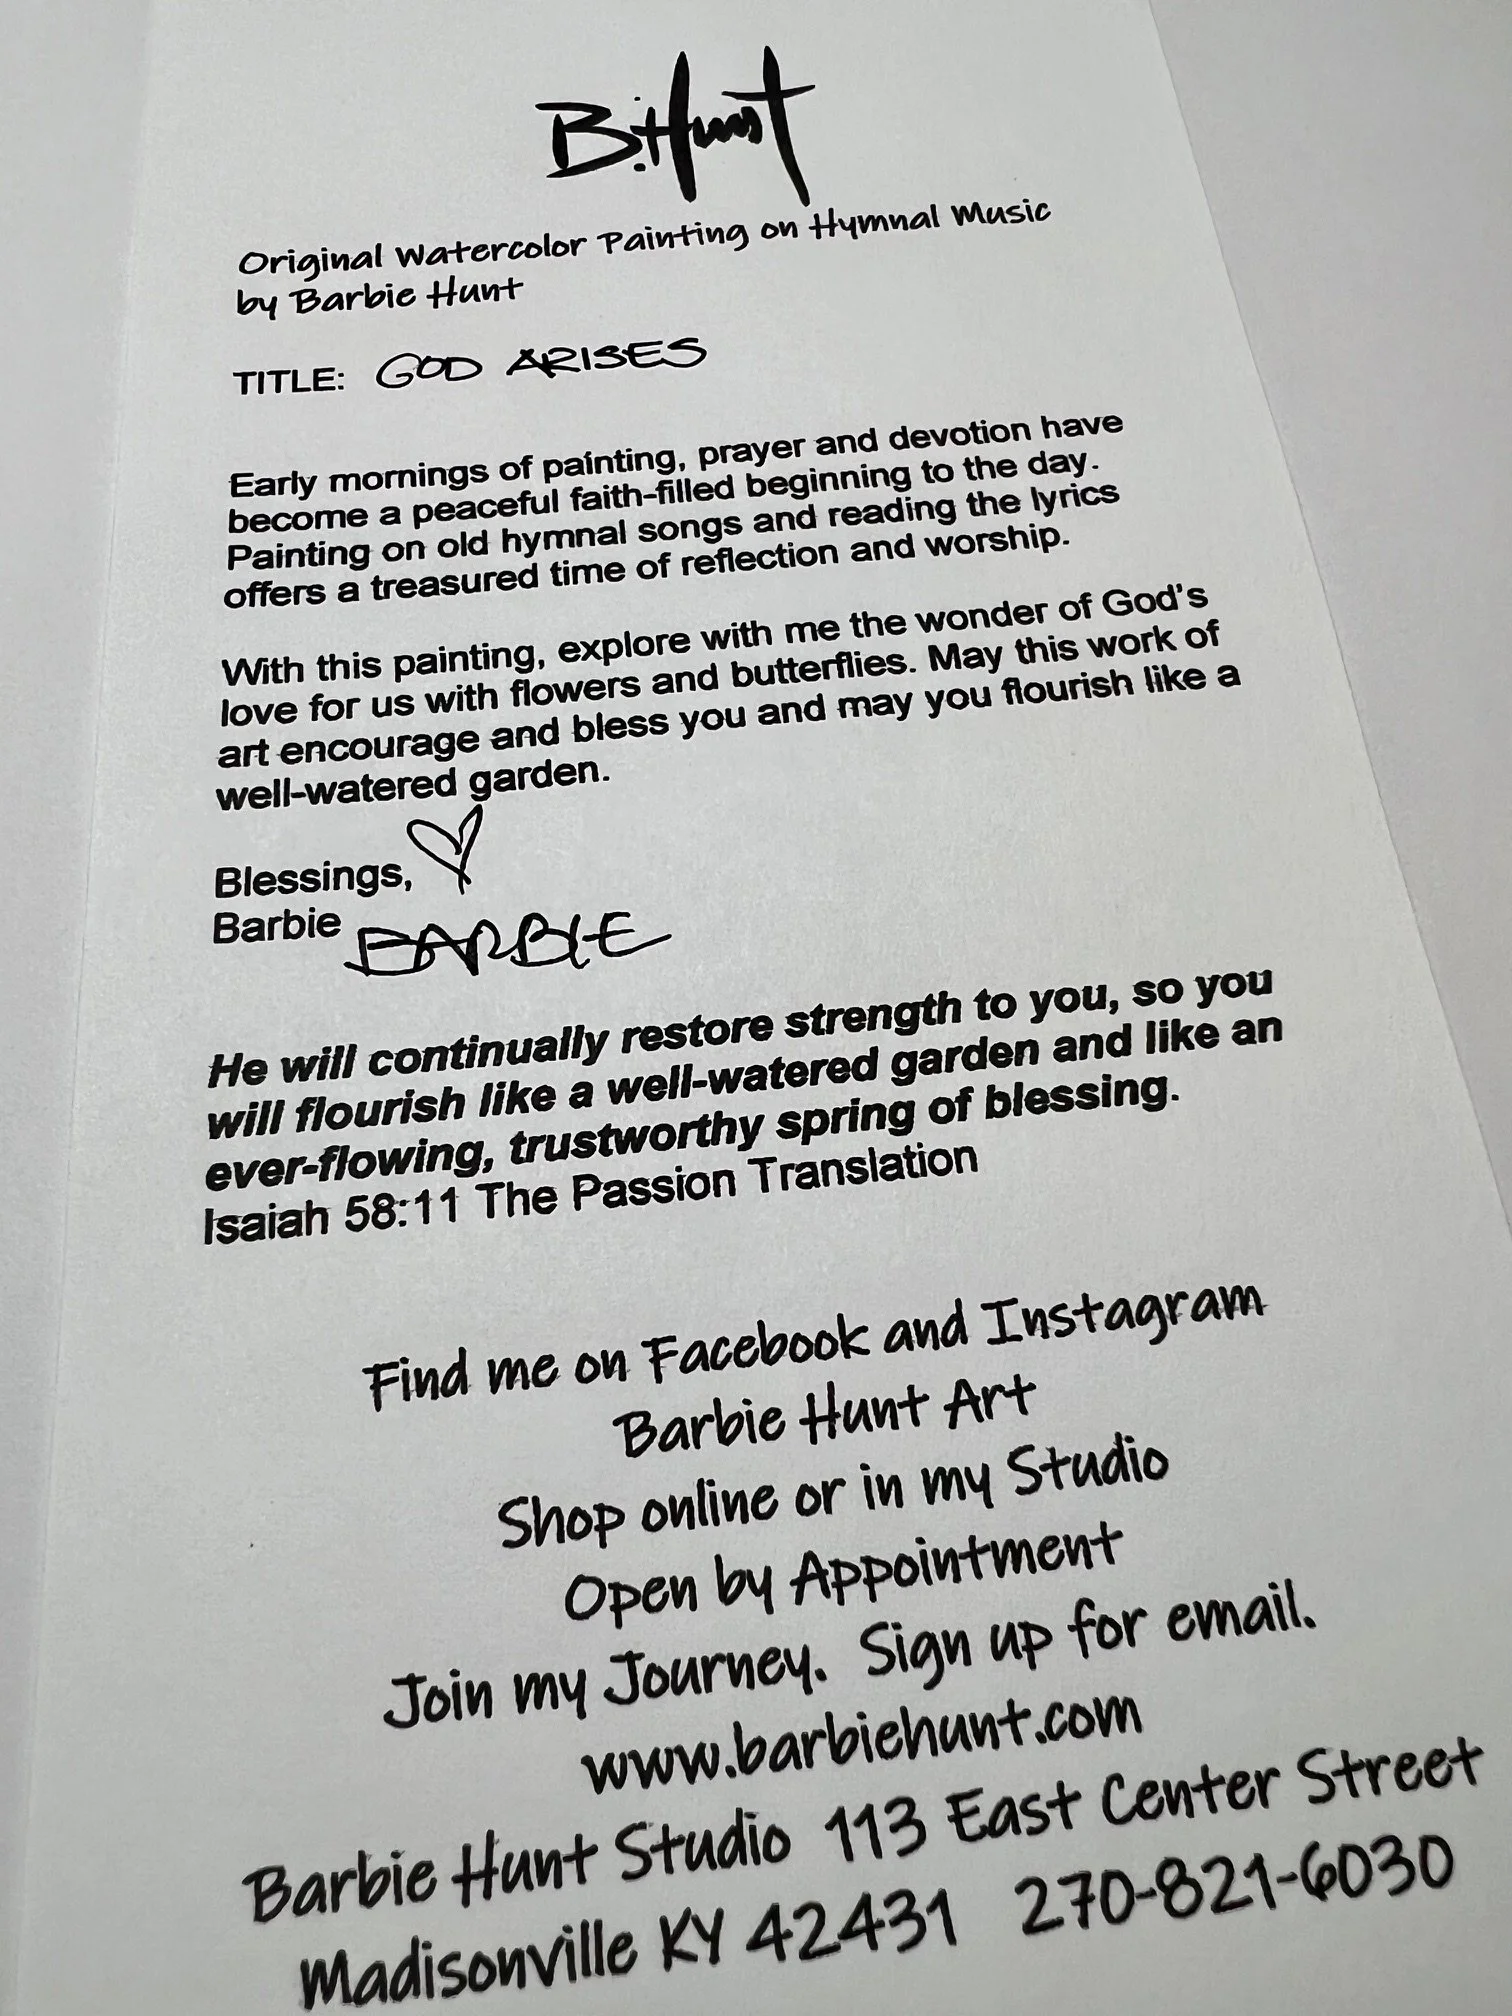 B.Hunt
Original Watercolor Painting on Hymnal Music
by Barbie Hunt
TITLE: GOD ARISES
Early mornings of painting, prayer and devotion have
become a peaceful faith-filled beginning to the day.
Painting on old hymnal songs and reading the lyrics
offers a treasured time of reflection and worship.
With this painting, explore with me the wonder of God's
love for us with flowers and butterflies. May this work of
art encourage and bless you and may you flourish like a
well-watered garden.
Blessings,
Barbie BARBIE
He will continually restore strength to you, so you
will flourish like a well-watered garden and like an
ever-flowing, trustworthy spring of blessing.
Isaiah 58:11 The Passion Translation
Find me on Facebook and Instagram
Barbie Hunt Art
Shop online or in my Studio
Open by Appointment
Join my Journey. Sign up for email.
www.barbiehunt.com
Barbie Hunt Studio 113 East Center Street
Madisonville KY 42431 270-821-6030